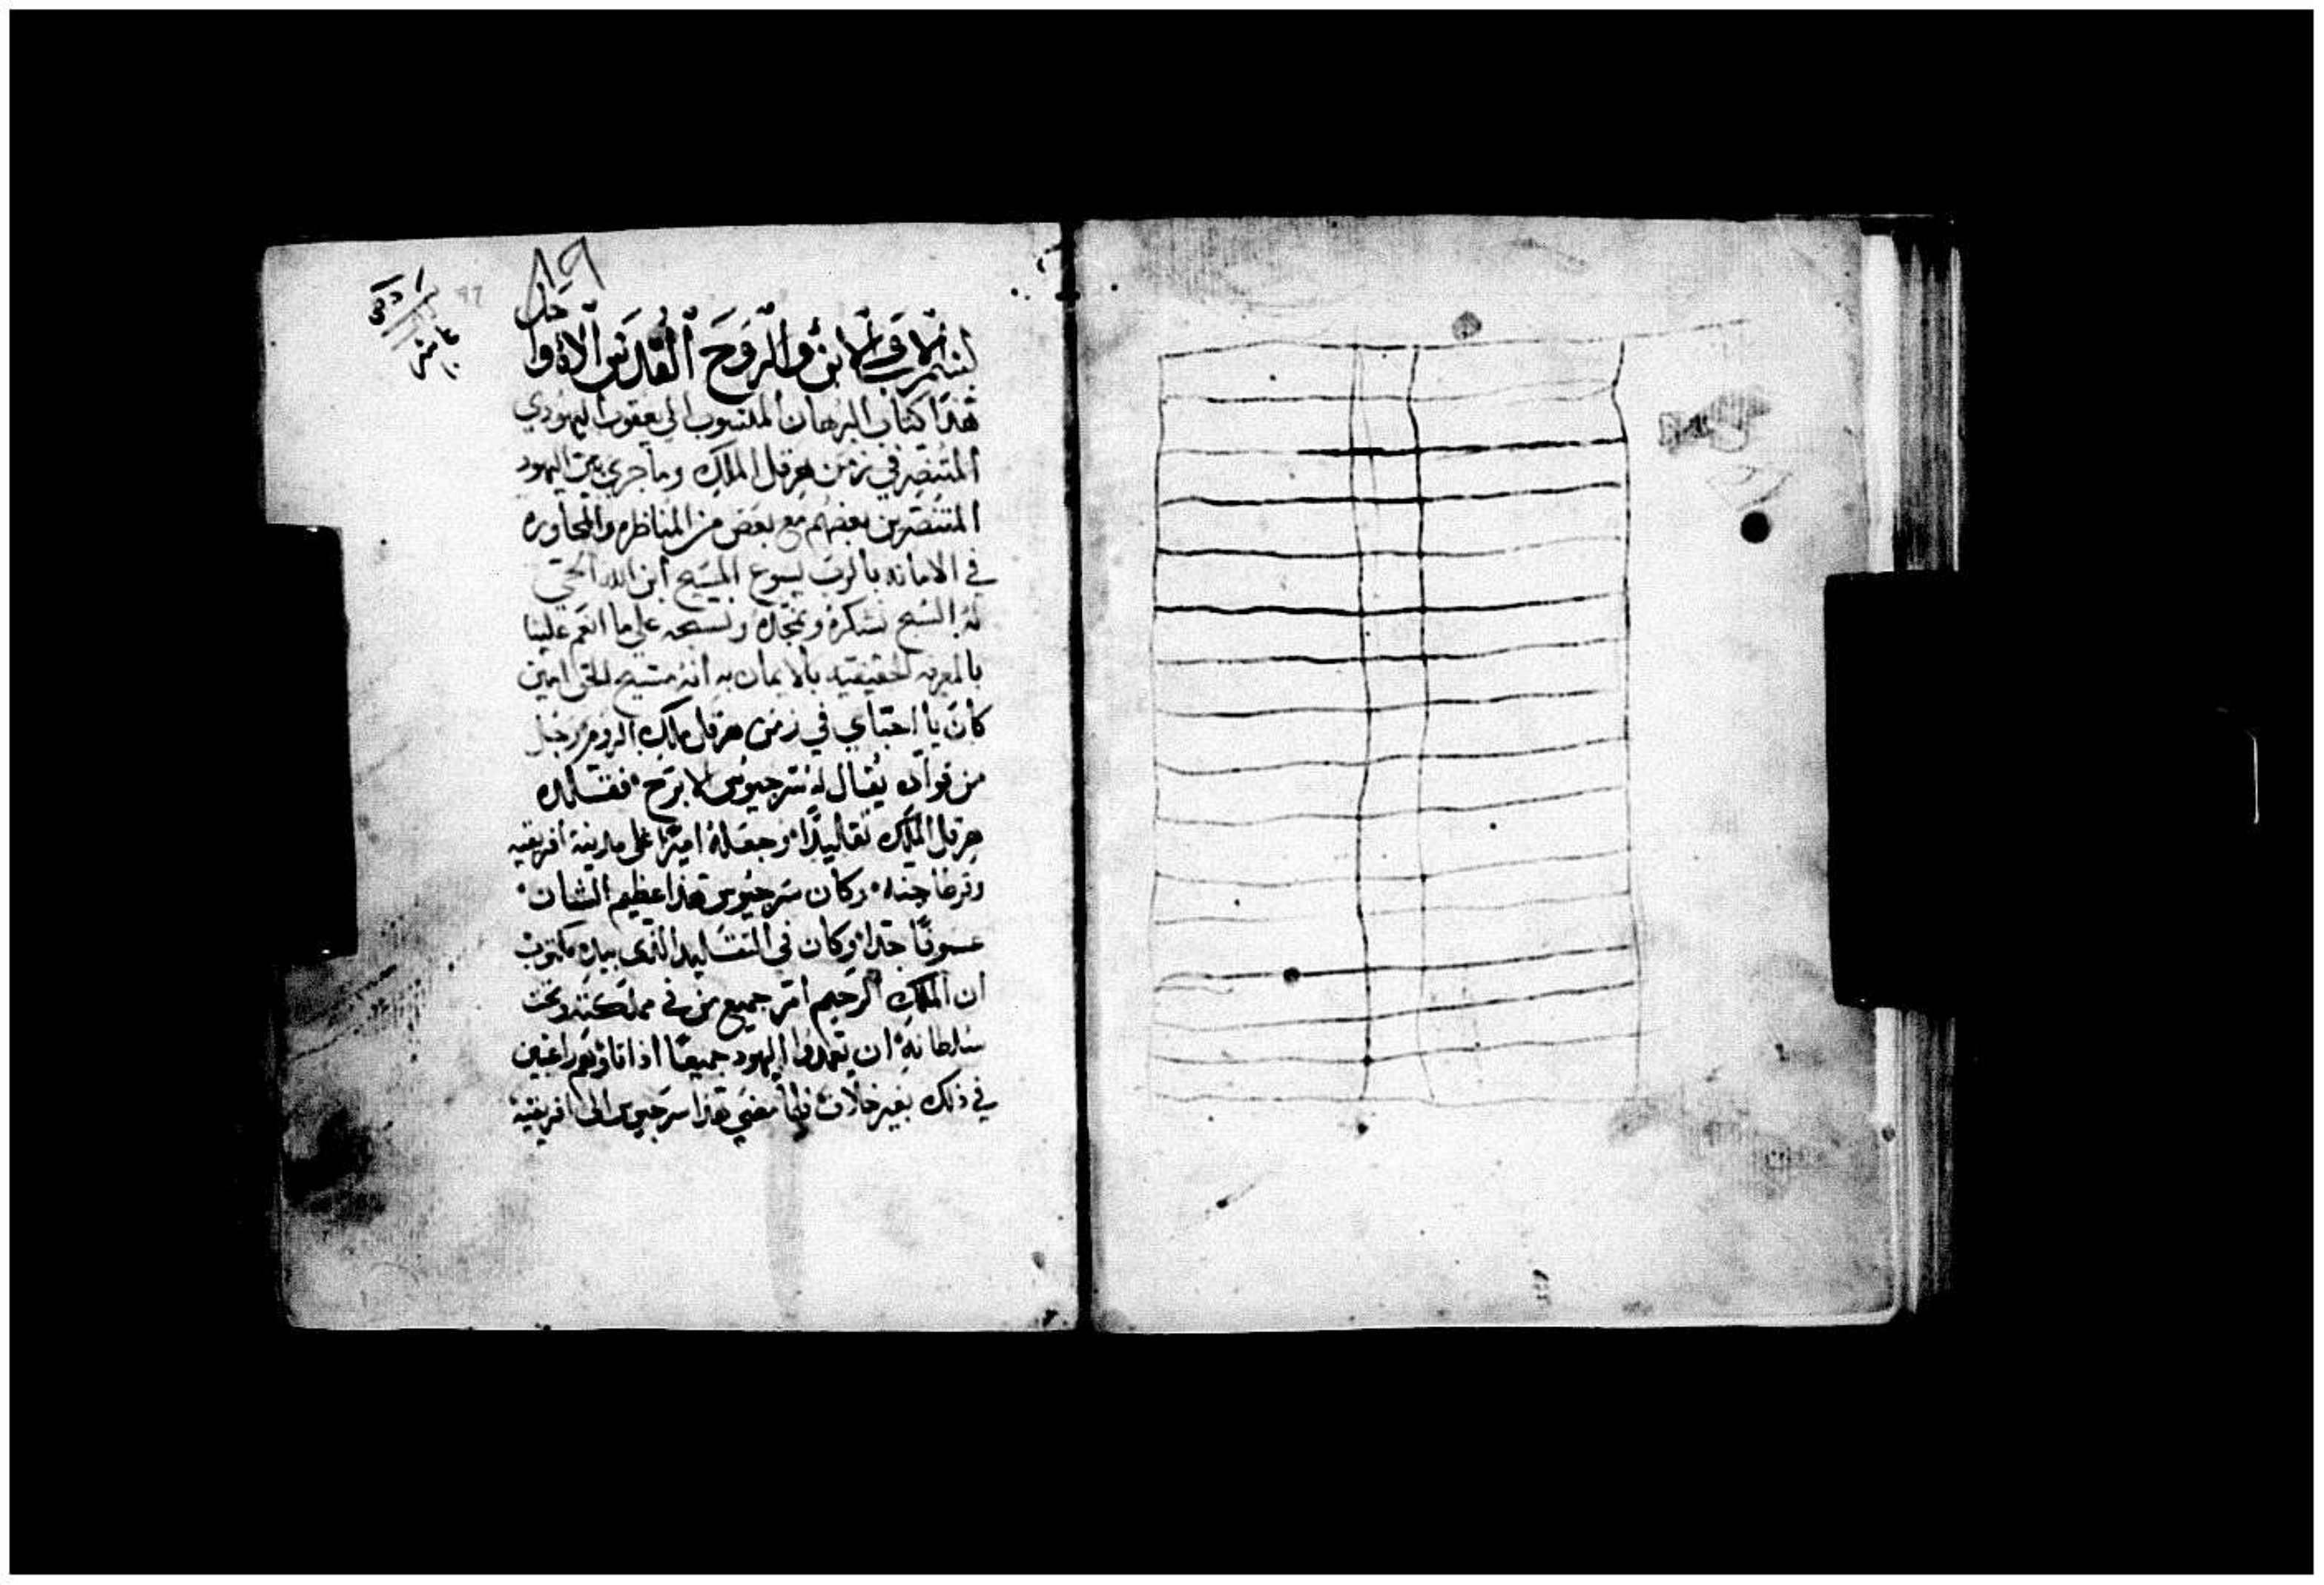 ٨٩
بسم الاب والابن والروح القدس الاه واحد
هذا كتاب البرهان المنسوب الي يعقوب اليهودي
المتنصر في زمن هرقل الملك وما جري بين اليهود
المتنصرين بعضهم مع بعض من المناظره والمحاوره
في الامانه بالرب يسوع المسيح ابن الله الحي
له السبح نشكره ونمجده ونسبحه علي ما انعم علينا
بالمعرفه الحقيقيه بالايمان به انه مسيح الحق امين
كان يا احباي في زمن هرقل ملك الروم رجل
من قواده يقال له سرجيوس الابرح فقلده
هرقل الملك تقاليدًا وجعله اميرًا على مدينة افريقيه
وقرطاجنه وكان سرجيوس هذا عظيم الشان
عسوفًا جدا وكان في التقليد الذى بيده مكتوب
ان الملك الرحيم امر جميع من في مملكته وتحت
سلطانه ان يعمدوا اليهود جميعًا اذا
في ذلك بغير خلاف فلما مضي هذا سرجيوس الى افريقية